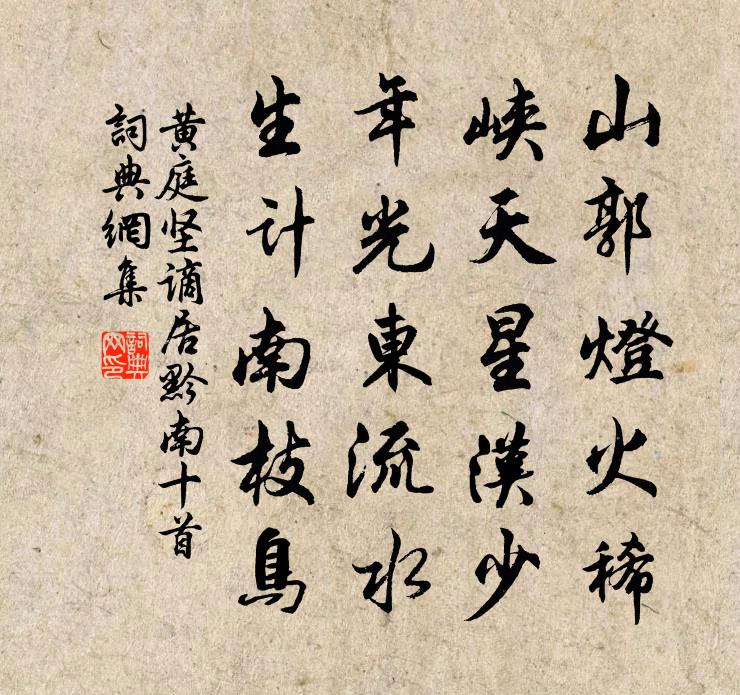 山郭燈火稀
峽天星漢少
年光東流水
生計南枝鳥
黄庭坚謫居黔南十首
詞典網集
詞典网印